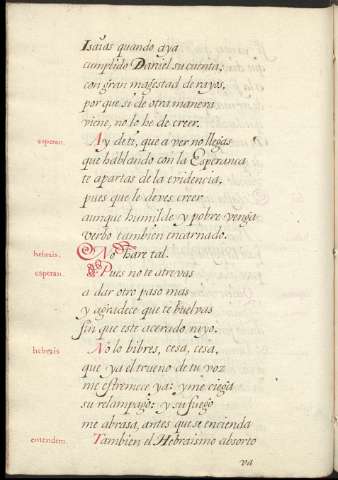 Isaias quando aya
cumplido Daniel su cuenta,
con gran magestad de rayos,
por que si de otra manera
viene, no lo he de creer.
esperan. Ay de ti, que a ver no llegas
que hablando con la Esperanza
te apartas de la evidencia,
pues que le deves creer
aunque humilde y pobre venga
Verbo tambien encarnado.
hebrais. No hare tal.
esperan. Pues no te atrevas
a dar otro paso mas
y agradece que te buelvas
sin que este acerado rayo.
hebrais No lo bibres, cesa, cesa,
que ya el trueno de tu voz
me estremece ya: y me ciega
su relampago: y su fuego
me abrasa, antes que se encienda
entendim. Tambien el Hebraismo absorto
va